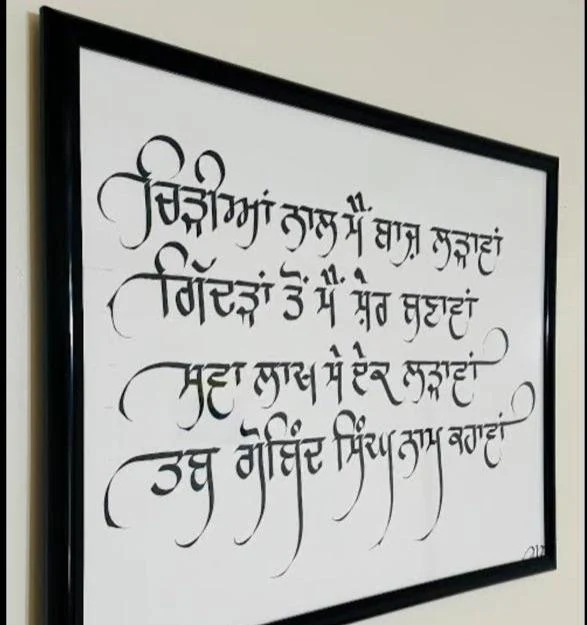 ਚਿੜੀਆਂ ਨਾਲ ਮੈਂ ਬਾਜ਼ ਲੜਾਵਾਂ
ਗਿੱਦੜਾਂ ਤੋਂ ਮੈਂ ਸ਼ੇਰ ਬਣਾਵਾਂ
ਸਵਾ ਲਾਖ ਸੇ ਏਕ ਲੜਾਵਾਂ
ਤਬ ਗੋਬਿੰਦ ਸਿੰਘ ਨਾਮ ਕਹਾਵਾਂ